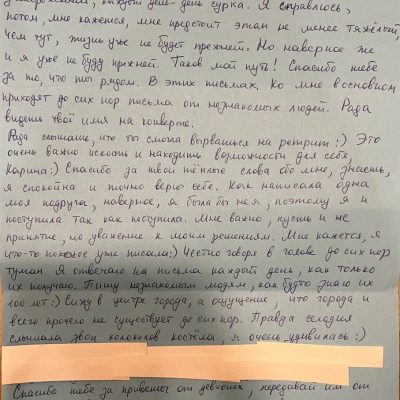 каждый день - день сурка. Я справлюсь,
потом, мне кажется, мне предстоит этап не менее тяжёлый,
чем тут, жизнь уже не будет прежней. Но наверное же
и я уже не буду прежней. Таков мой путь! Спасибо тебе
за то, что ты рядом. В этих письмах. Ко мне в основном
приходят до сих пор письма от незнакомых людей. Рада
видеть твоё имя на конверте.
Рада слышать, что ты смогла вырваться на ретрит :) Это
очень важно искать и находить возможности для себя,
Карина :) Спасибо за твои тёплые слова обо мне, знаешь,
я спокойна и точно верю себе. Как написала одна
моя подруга, наверное, я была бы не я, поэтому я и
поступила так как поступила. Мне важно, пусть и не
принятие, но уважение к моим решениям. Мне кажется, я
что-то похожее уже писала :) Честно говоря в голове до сих пор
туман. Я отвечаю на письма каждый день, как только
их получаю. Пишу незнакомым людям, как будто знаю их
100 лет :) Сижу в центре города, а ощущение, что города и
всего прочего не существует до сих пор. Правда сегодня
слышала звон колоколов костёла, я очень удивилась :)
Спасибо тебе за приветы от девчонок, передавай им от